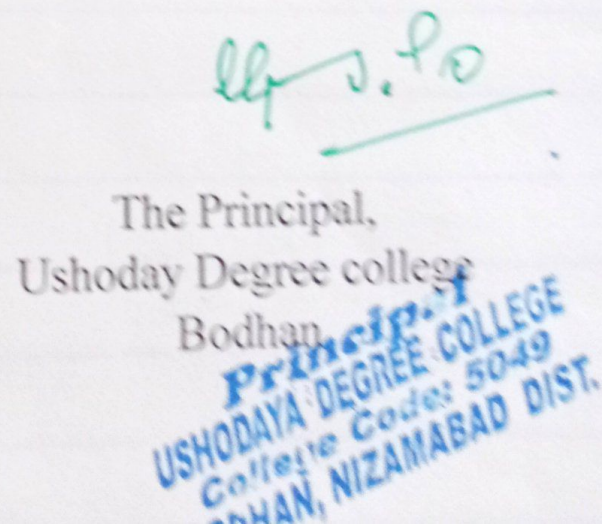 The Principal,
Ushoday Degree college
Bodhan
Principal
USHODAYA DEGREE COLLEGE
College Code: 5049
BODHAN, NIZAMABAD DIST.